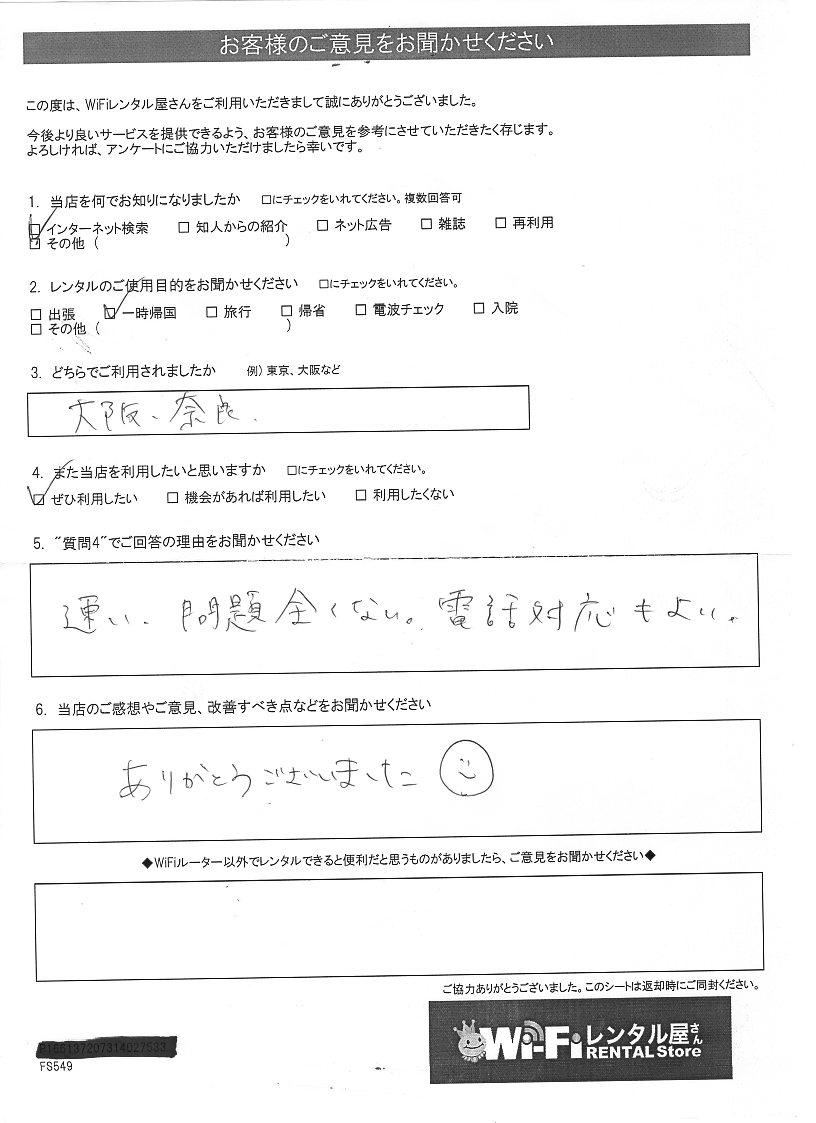 お客様のご意見をお聞かせください
この度は、WiFiレンタル屋さんをご利用いただきまして誠にありがとうございました。
今後より良いサービスを提供できるよう、お客様のご意見を参考にさせていただきたく存じます。
よろしければ、アンケートにご協力いただけましたら幸いです。
1. 当店を何でお知りになりましたか □にチェックをいれてください。複数回答可
☑ インターネット検索 □ 知人からの紹介 □ ネット広告 □ 雑誌 □ 再利用
□ その他 ( )
2. レンタルのご使用目的をお聞かせください □にチェックをいれてください。
□ 出張 ☑ 一時帰国 □ 旅行 □ 帰省 □ 電波チェック □ 入院
□ その他 ( )
3. どちらでご利用されましたか 例) 東京、大阪など
大阪、奈良.
4. また当店を利用したいと思いますか □にチェックをいれてください。
☑ ぜひ利用したい □ 機会があれば利用したい □ 利用したくない
5. "質問4"でご回答の理由をお聞かせください
速い、問題全くない。電話対応もよい。
6. 当店のご感想やご意見、改善すべき点などをお聞かせください
ありがとうございました
◆WiFiルーター以外でレンタルできると便利だと思うものがありましたら、ご意見をお聞かせください◆
ご協力ありがとうございました。このシートは返却時にご同封ください。
Wi-Fiレンタル屋さん
RENTAL Store
FS549